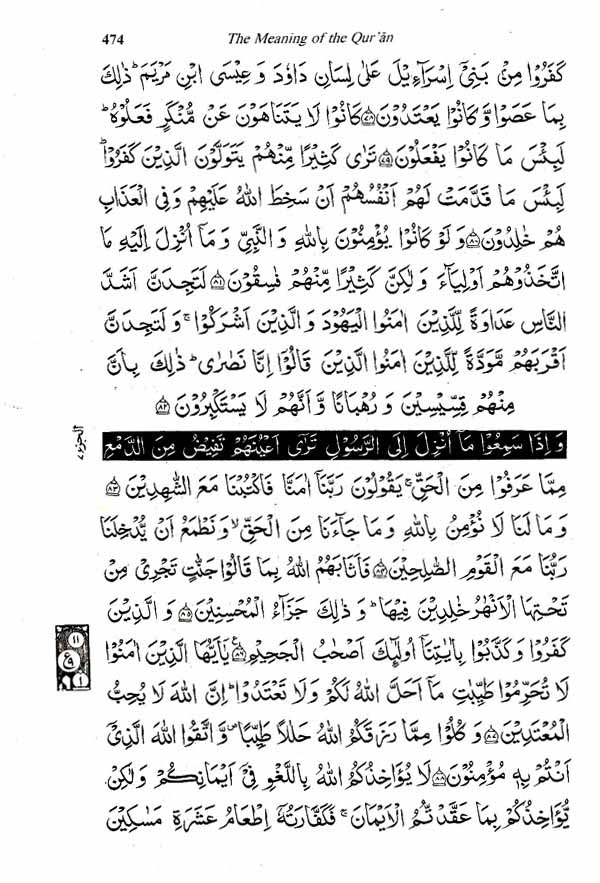 474
The Meaning of the Qur'ān
كَفَرُوْا مِنْۢ بَنِیْۤ اِسْرَآءِیْلَ عَلٰی لِسَانِ دَاوٗدَ وَ عِیْسَی ابْنِ مَرْیَمَ ؕ ذٰلِكَ
بِمَا عَصَوْا وَّ كَانُوْا یَعْتَدُوْنَ ﴿۷۸﴾ كَانُوْا لَا یَتَنَاهَوْنَ عَنْ مُّنْكَرٍ فَعَلُوْهُ ؕ
لَبِئْسَ مَا كَانُوْا یَفْعَلُوْنَ ﴿۷۹﴾ تَرٰی كَثِیْرًا مِّنْهُمْ یَتَوَلَّوْنَ الَّذِیْنَ كَفَرُوْا ؕ
لَبِئْسَ مَا قَدَّمَتْ لَهُمْ اَنْفُسُهُمْ اَنْ سَخِطَ اللّٰهُ عَلَیْهِمْ وَ فِی الْعَذَابِ
هُمْ خٰلِدُوْنَ ﴿۸۰﴾ وَ لَوْ كَانُوْا یُؤْمِنُوْنَ بِاللّٰهِ وَ النَّبِیِّ وَ مَاۤ اُنْزِلَ اِلَیْهِ مَا
اتَّخَذُوْهُمْ اَوْلِیَآءَ وَ لٰكِنَّ كَثِیْرًا مِّنْهُمْ فٰسِقُوْنَ ﴿۸۱﴾ لَتَجِدَنَّ اَشَدَّ
النَّاسِ عَدَاوَةً لِّلَّذِیْنَ اٰمَنُوا الْیَهُوْدَ وَ الَّذِیْنَ اَشْرَكُوْا ۚ وَ لَتَجِدَنَّ
اَقْرَبَهُمْ مَّوَدَّةً لِّلَّذِیْنَ اٰمَنُوا الَّذِیْنَ قَالُوْۤا اِنَّا نَصٰرٰی ؕ ذٰلِكَ بِاَنَّ
مِنْهُمْ قِسِّیْسِیْنَ وَ رُهْبَانًا وَّ اَنَّهُمْ لَا یَسْتَكْبِرُوْنَ ﴿۸۲﴾
الجزء ۷
وَ اِذَا سَمِعُوْا مَاۤ اُنْزِلَ اِلَی الرَّسُوْلِ تَرٰۤی اَعْیُنَهُمْ تَفِیْضُ مِنَ الدَّمْعِ
مِمَّا عَرَفُوْا مِنَ الْحَقِّ ۚ یَقُوْلُوْنَ رَبَّنَاۤ اٰمَنَّا فَاكْتُبْنَا مَعَ الشّٰهِدِیْنَ ﴿۸۳﴾
وَ مَا لَنَا لَا نُؤْمِنُ بِاللّٰهِ وَ مَا جَآءَنَا مِنَ الْحَقِّ ۙ وَ نَطْمَعُ اَنْ یُّدْخِلَنَا
رَبُّنَا مَعَ الْقَوْمِ الصّٰلِحِیْنَ ﴿۸۴﴾ فَاَثَابَهُمُ اللّٰهُ بِمَا قَالُوْا جَنّٰتٍ تَجْرِیْ مِنْ
تَحْتِهَا الْاَنْهٰرُ خٰلِدِیْنَ فِیْهَا ؕ وَ ذٰلِكَ جَزَآءُ الْمُحْسِنِیْنَ ﴿۸۵﴾ وَ الَّذِیْنَ
۱۱
ع ۹
۱
كَفَرُوْا وَ كَذَّبُوْا بِاٰیٰتِنَاۤ اُولٰٓئِكَ اَصْحٰبُ الْجَحِیْمِ ﴿۸۶﴾ یٰۤاَیُّهَا الَّذِیْنَ اٰمَنُوْا
لَا تُحَرِّمُوْا طَیِّبٰتِ مَاۤ اَحَلَّ اللّٰهُ لَكُمْ وَ لَا تَعْتَدُوْا ؕ اِنَّ اللّٰهَ لَا یُحِبُّ
الْمُعْتَدِیْنَ ﴿۸۷﴾ وَ كُلُوْا مِمَّا رَزَقَكُمُ اللّٰهُ حَلٰلًا طَیِّبًا ۪ وَّ اتَّقُوا اللّٰهَ الَّذِیْۤ
اَنْتُمْ بِهٖ مُؤْمِنُوْنَ ﴿۸۸﴾ لَا یُؤَاخِذُكُمُ اللّٰهُ بِاللَّغْوِ فِیْۤ اَیْمَانِكُمْ وَ لٰكِنْ
یُّؤَاخِذُكُمْ بِمَا عَقَّدْتُّمُ الْاَیْمَانَ ۚ فَكَفَّارَتُهٗۤ اِطْعَامُ عَشَرَةِ مَسٰكِیْنَ